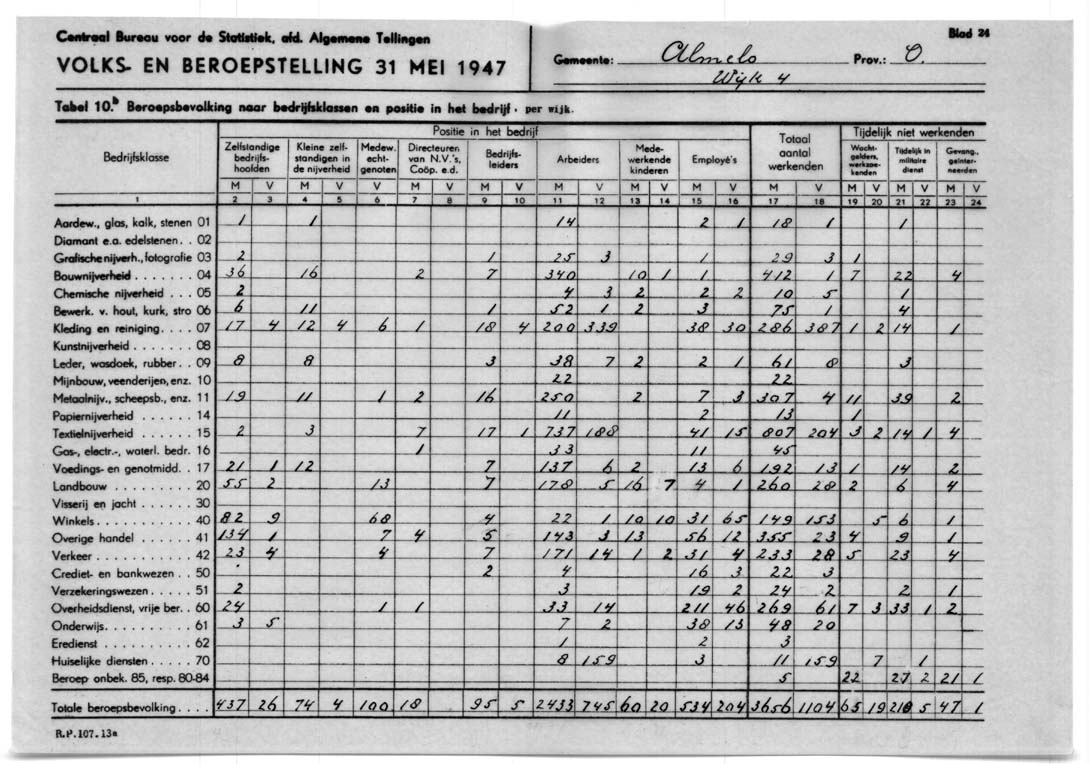 Centraal Bureau voor de Statistiek, afd. Algemene Tellingen
Blad 24
VOLKS- EN BEROEPSTELLING 31 MEI 1947
Gemeente: Almelo Prov.: O.
Wijk 4
Tabel 10.b Beroepsbevolking naar bedrijfsklassen en positie in het bedrijf. per wijk.
Bedrijfsklasse
Positie in het bedrijf
Zelfstandige bedrijfs-hoofden
Kleine zelf-standigen in de nijverheid
Medew. echt-genoten
Directeuren van N.V.'s, Coöp. e.d.
Bedrijfs-leiders
Arbeiders
Mede-werkende kinderen
Employé's
Totaal aantal werkenden
Tijdelijk niet werkenden
Wacht-gelders, werkzoe-kenden
Tijdelijk in militaire dienst
Gevang., geïnter-neerden
M V M V V M V M V M V M V M V M V M V M V M V
1 2 3 4 5 6 7 8 9 10 11 12 13 14 15 16 17 18 19 20 21 22 23 24
Aardew., glas, kalk, stenen 01 1 1 14 2 1 18 1 1
Diamant e.a. edelstenen. . 02
Grafische nijverh., fotografie 03 2 1 25 3 1 29 3 1
Bouwnijverheid . . . . . . . 04 36 16 2 7 340 10 1 1 412 1 7 22 4
Chemische nijverheid . . . 05 2 4 3 2 2 2 10 5 1
Bewerk. v. hout, kurk, stro 06 6 11 1 52 1 2 3 75 1 4
Kleding en reiniging. . . . 07 17 4 12 4 6 1 18 4 200 339 38 30 286 387 1 2 14 1
Kunstnijverheid . . . . . . . 08
Leder, wasdoek, rubber. . 09 8 8 3 38 7 2 2 1 61 8 3
Mijnbouw, veenderijen, enz. 10 22 22
Metaalnijv., scheepsb., enz. 11 19 11 1 2 16 250 2 7 3 307 4 11 39 2
Papiernijverheid . . . . . . 14 11 2 13 1
Textielnijverheid . . . . . . 15 2 3 7 17 1 737 188 41 15 807 204 3 2 14 1 4
Gas-, electr.-, waterl. bedr. 16 1 33 11 45
Voedings- en genotmidd. . 17 21 1 12 7 137 6 2 13 6 192 13 1 14 2
Landbouw . . . . . . . . . 20 55 2 13 7 178 5 16 7 4 1 260 28 2 6 4
Visserij en jacht . . . . . . 30
Winkels. . . . . . . . . . . 40 82 9 68 4 22 1 10 10 31 65 149 153 5 6 1
Overige handel . . . . . . 41 134 1 7 4 5 143 3 13 56 12 355 23 4 9 1
Verkeer . . . . . . . . . . 42 23 4 4 7 171 14 1 2 31 4 233 28 5 23 4
Crediet- en bankwezen . . 50 2 4 16 3 22 3
Verzekeringswezen . . . . 51 2 3 19 2 24 2 2 1
Overheidsdienst, vrije ber. . 60 24 1 1 33 14 211 46 269 61 7 3 33 1 2
Onderwijs. . . . . . . . . . 61 3 5 7 2 38 13 48 20
Eredienst . . . . . . . . . . 62 1 2 3
Huiselijke diensten . . . . . 70 8 159 3 11 159 7 1
Beroep onbek. 85, resp. 80-84 5 22 27 2 21 1
Totale beroepsbevolking . . . . 437 26 74 4 100 18 95 5 2433 745 60 20 534 204 3656 1104 65 19 218 5 47 1
R.P.107.13a